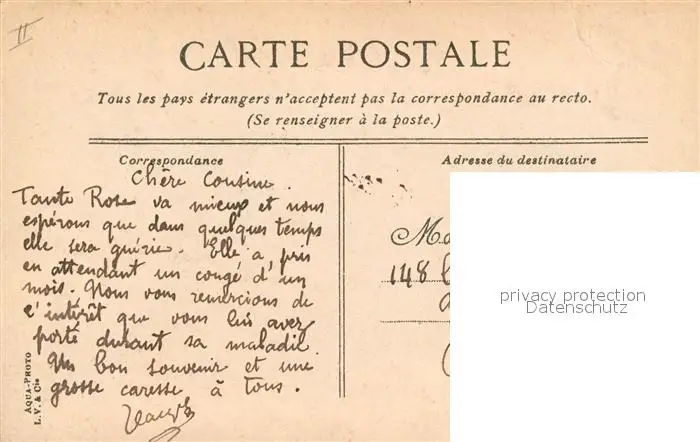 II
CARTE POSTALE
Tous les pays étrangers n'acceptent pas la correspondance au recto.
(Se renseigner à la poste.)
Correspondance
Chère Cousine.
Tante Rose va mieux et nous
espérons que dans quelques temps
elle sera guérie. Elle a, pris
en attendant un congé d'un
mois. Nous vous remercions de
l'intérêt que vous lui avez
porté durant sa maladie.
Un bon souvenir et une
grosse caresse à tous.
AQUA-PHOTO
L.V. & Cie
Adresse du destinataire
148
privacy protection
Datenschutz